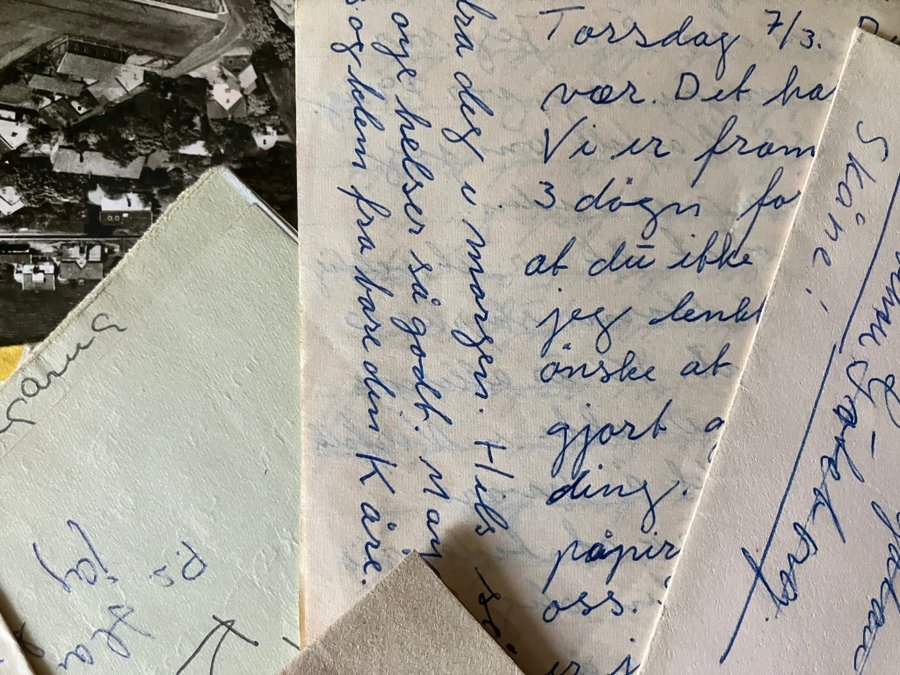 Torsdag 7/3.
vær. Det ha
Vi er fram
3 døgn fo
at du ikke
jeg tenkt
ønske at
gjort
ding.
påpir
oss.
er
bra deg i morgen. Hils
oye helser så godt. May
og klem fra bare din Kåre.
Skåne!
P.S.
jag
Ha
K